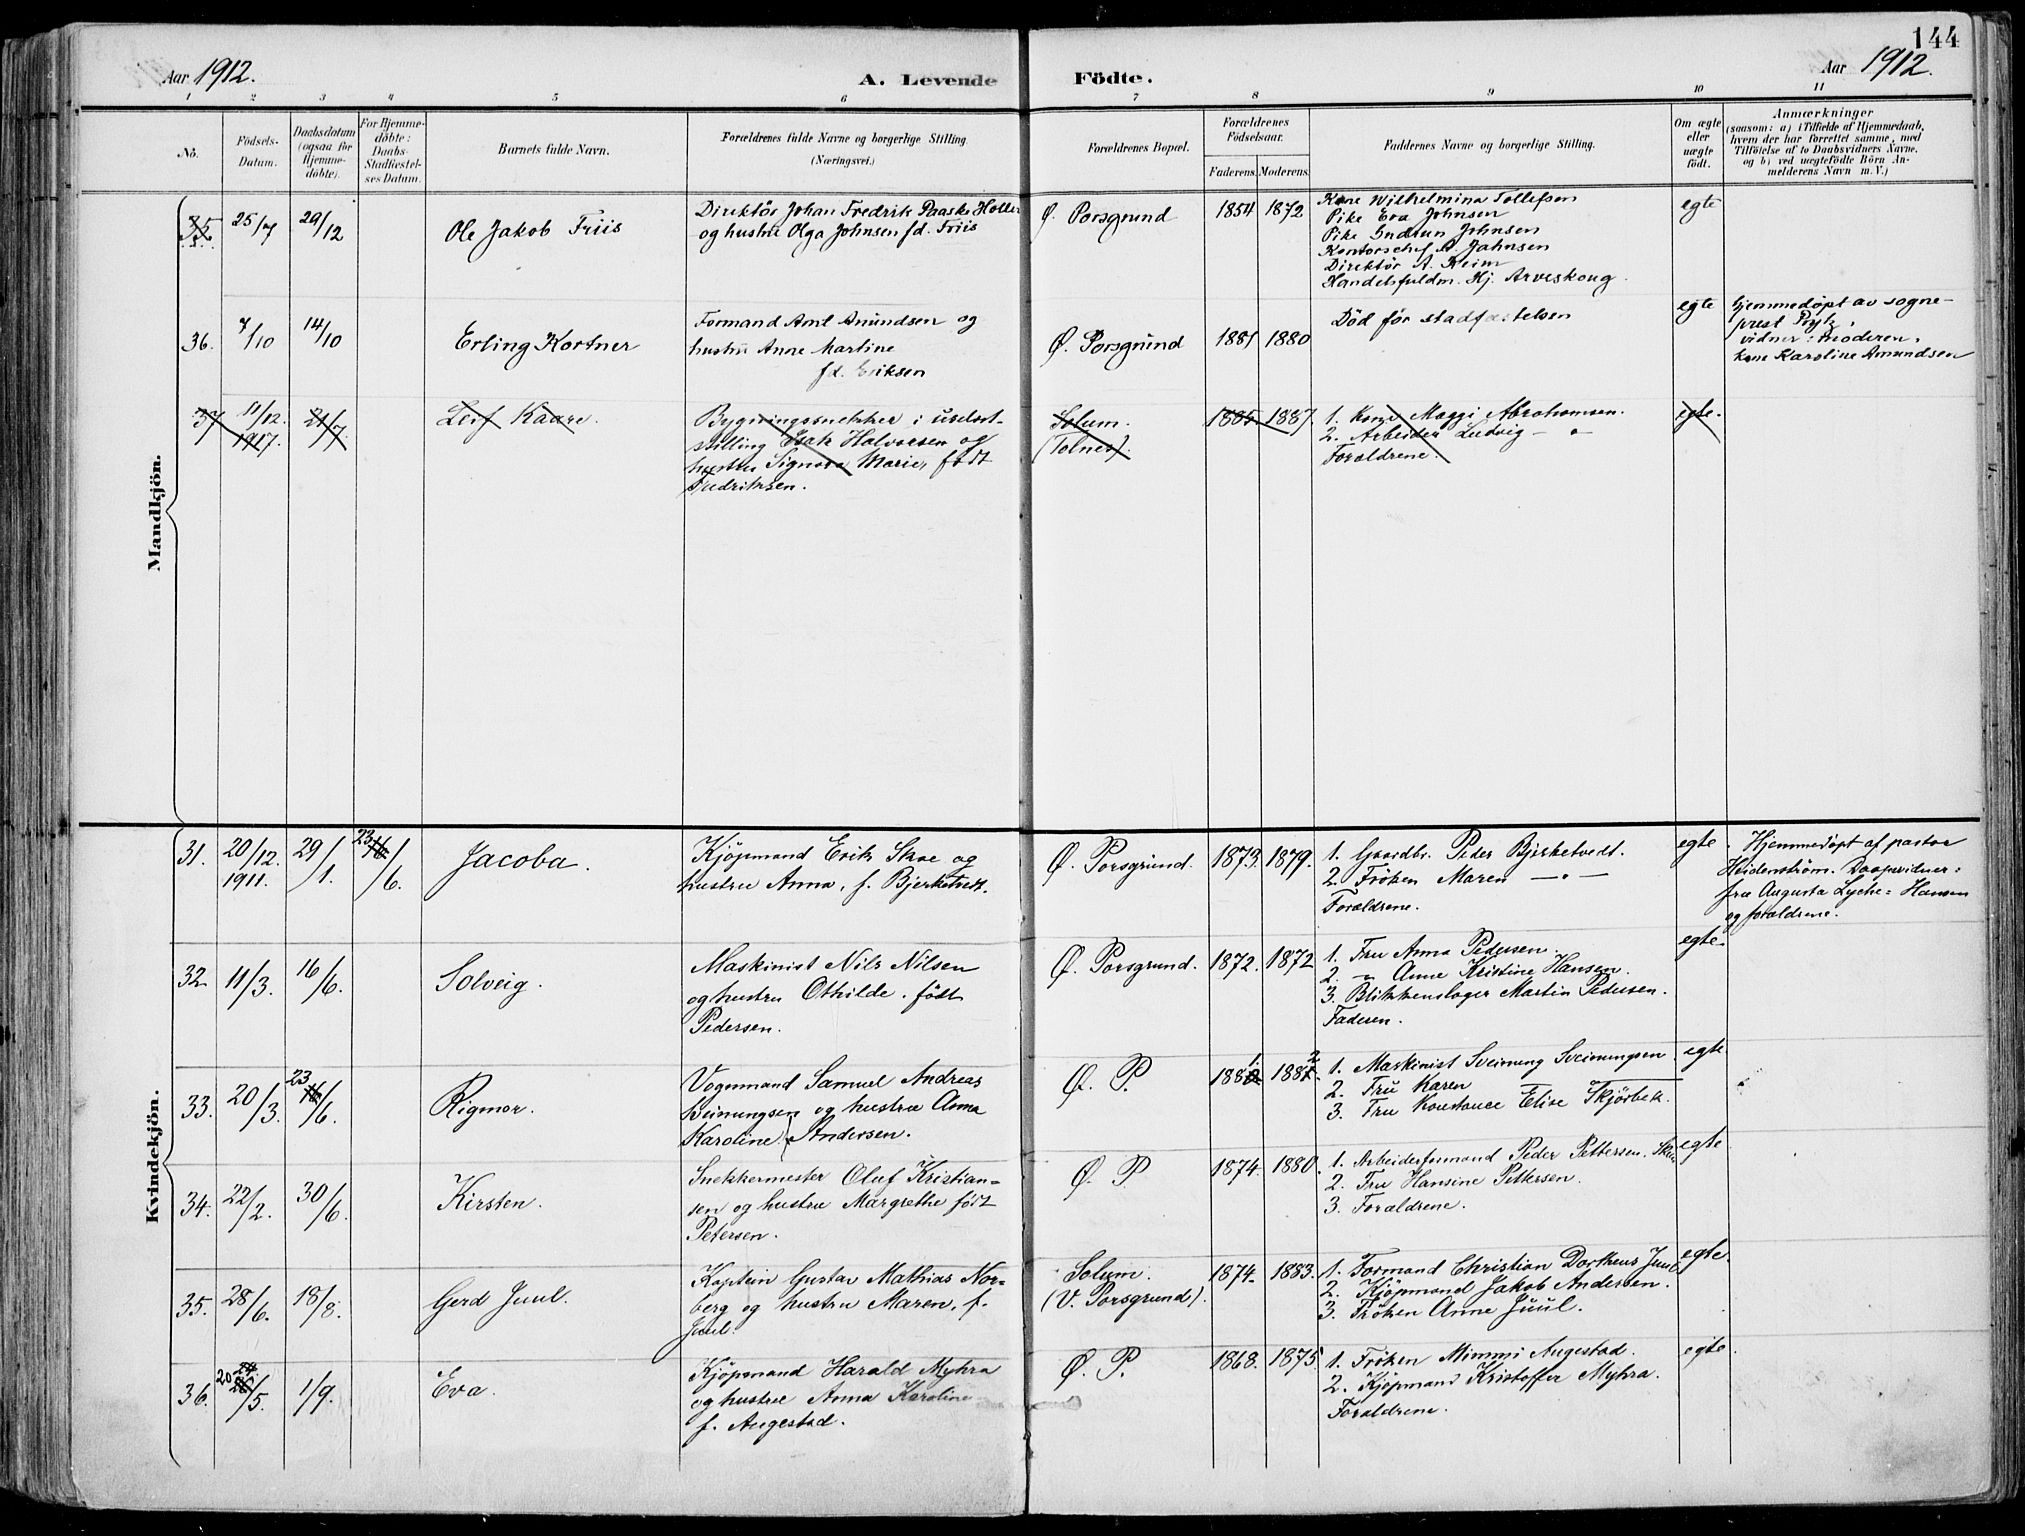 144
Aar 1912.
A. Levende Födte.
Aar 1912.
1 2 3 4 5 6 7 8 9 10 11
No.
Födsels-
Datum.
Daabsdatum
(ogsaa for
Hjemme-
döbte).
For Hjemme-
döbte:
Daabs-
Stadfæstel-
ses Datum.
Barnets fulde Navn.
Forældrenes fulde Navne og borgerlige Stilling.
(Næringsvei.)
Forældrenes Bopæl.
Forældrenes
Födselsaar.
Faderens. Moderens.
Faddernes Navne og borgerlige Stilling.
Om ægte
eller
uægte
født.
Anmærkninger
(saasom: a) i Tilfælde af Hjemmedaab,
hvem der har forrettet samme, med
Tilföielse af to Daabsvidners Navne,
og b) ved uægtefödte Börn An-
melderens Navn m. V.)
Mandkjön.
35 25/7 29/12
Ole Jakob Friis
Direktör Johan Fredrik Paaske Holler
og hustru Olga Johnsen fd. Friis
Ø. Porsgrund
1854 1872
Kone Wilhelmina Tollefsen
Pike Eva Johnsen
Pike Gudrun Johnsen
Kontorschef A. Jahnsen
Direktör A. Keim
Handelsfuldm. Hj. Arveskoug.
egte
36. 7/10 14/10
Erling Kortner
Formand Amt Amundsen og
hustru Anne Martine
fd. Eriksen
Ø. Porsgrund
1881 1880
Död før stadfæstelsen
egte
Hjemmedøpt av sogne-
prest Prytz,
vidner: moderen,
kone Karoline Amundsen
37 11/12. 1917. 21/7.
Leif Kaare.
Bygningssnekker i uselvst-
stilling Isak Halvorsen og
hustru Signora Marie, født
Fredriksen.
Solum.
(Tolnes).
1885 1887.
1. Kone Maggi Abrahamsen.
2. Arbeider Ludvig — „
Forældrene.
egte.
Kvindekjön.
31. 20/12. 1911. 29/1. 23 16/6.
Jacoba.
Kjöpmand Erik Skoe og
hustru Anna, f. Bjerketvedt.
Ø. Porsgrund.
1873. 1879.
1. Gaardbr. Peder Bjerketvedt.
2. Frøken Maren — „ —
Forældrene.
egte.
Hjemmedøpt af pastor
Heidenstrøm. Daapsvidner:
fru Augusta Lyche-Hansen
og forældrene.
32. 11/3. 16/6.
Solveig.
Maskinist Nils Nilsen
og hustru Othilde, født
Pedersen.
Ø. Porsgrund.
1872. 1872
1. Fru Anna Pedersen.
2. „ Anne Kristine Hansen.
3. Blikkenslager Martin Pedersen.
Faderen.
egte.
33. 20/3. 23 16/6.
Rigmor.
Vognmand Samuel Andreas
Sveinungsen og hustru Anna
Karoline f. Andersen.
Ø. P.
1881. 1882.
1. Maskinist Sveinung Sveinungsen
2. Fru Karen
3. Fru Konstance Elise Skjörbek.
egte
34. 22/2. 30/6.
Kirsten.
Snekkermester Oluf Kristian-
sen og hustru Margrethe født
Petersen.
Ø. P.
1874. 1880.
1. Arbeiderformand Peder Pettersen.
2. Fru Hansine Pettersen.
3. Forældrene.
egte
35. 28/6. 18/8.
Gerd Juul.
Kaptein Gustav Mathias Nor-
berg og hustru Maren, f.
Juul.
Solum.
(V. Porsgrund).
1874. 1883.
1. Formand Christian Dortheus Juul
2. Kjöpmand Jakob Andersen.
3. Frøken Anne Juul.
egte.
36. 20/5. 1/9.
Eva.
Kjöpmand Harald Myhra
og hustru Anna Karoline
f. Augestad.
Ø. P.
1868. 1875.
1. Frøken Mimmi Augestad.
2. Kjöpmand Kristoffer Myhra.
Forældrene.
egte.